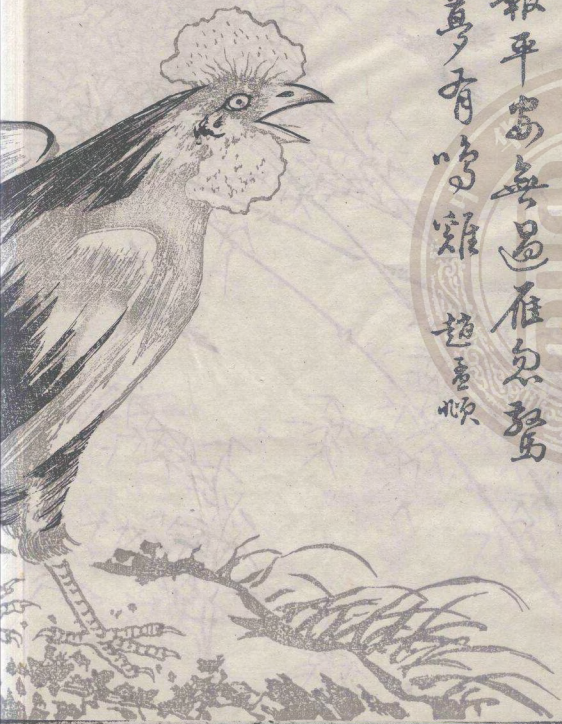 報平安無過雁忽驚
夢有鳴雞
趙孟頫